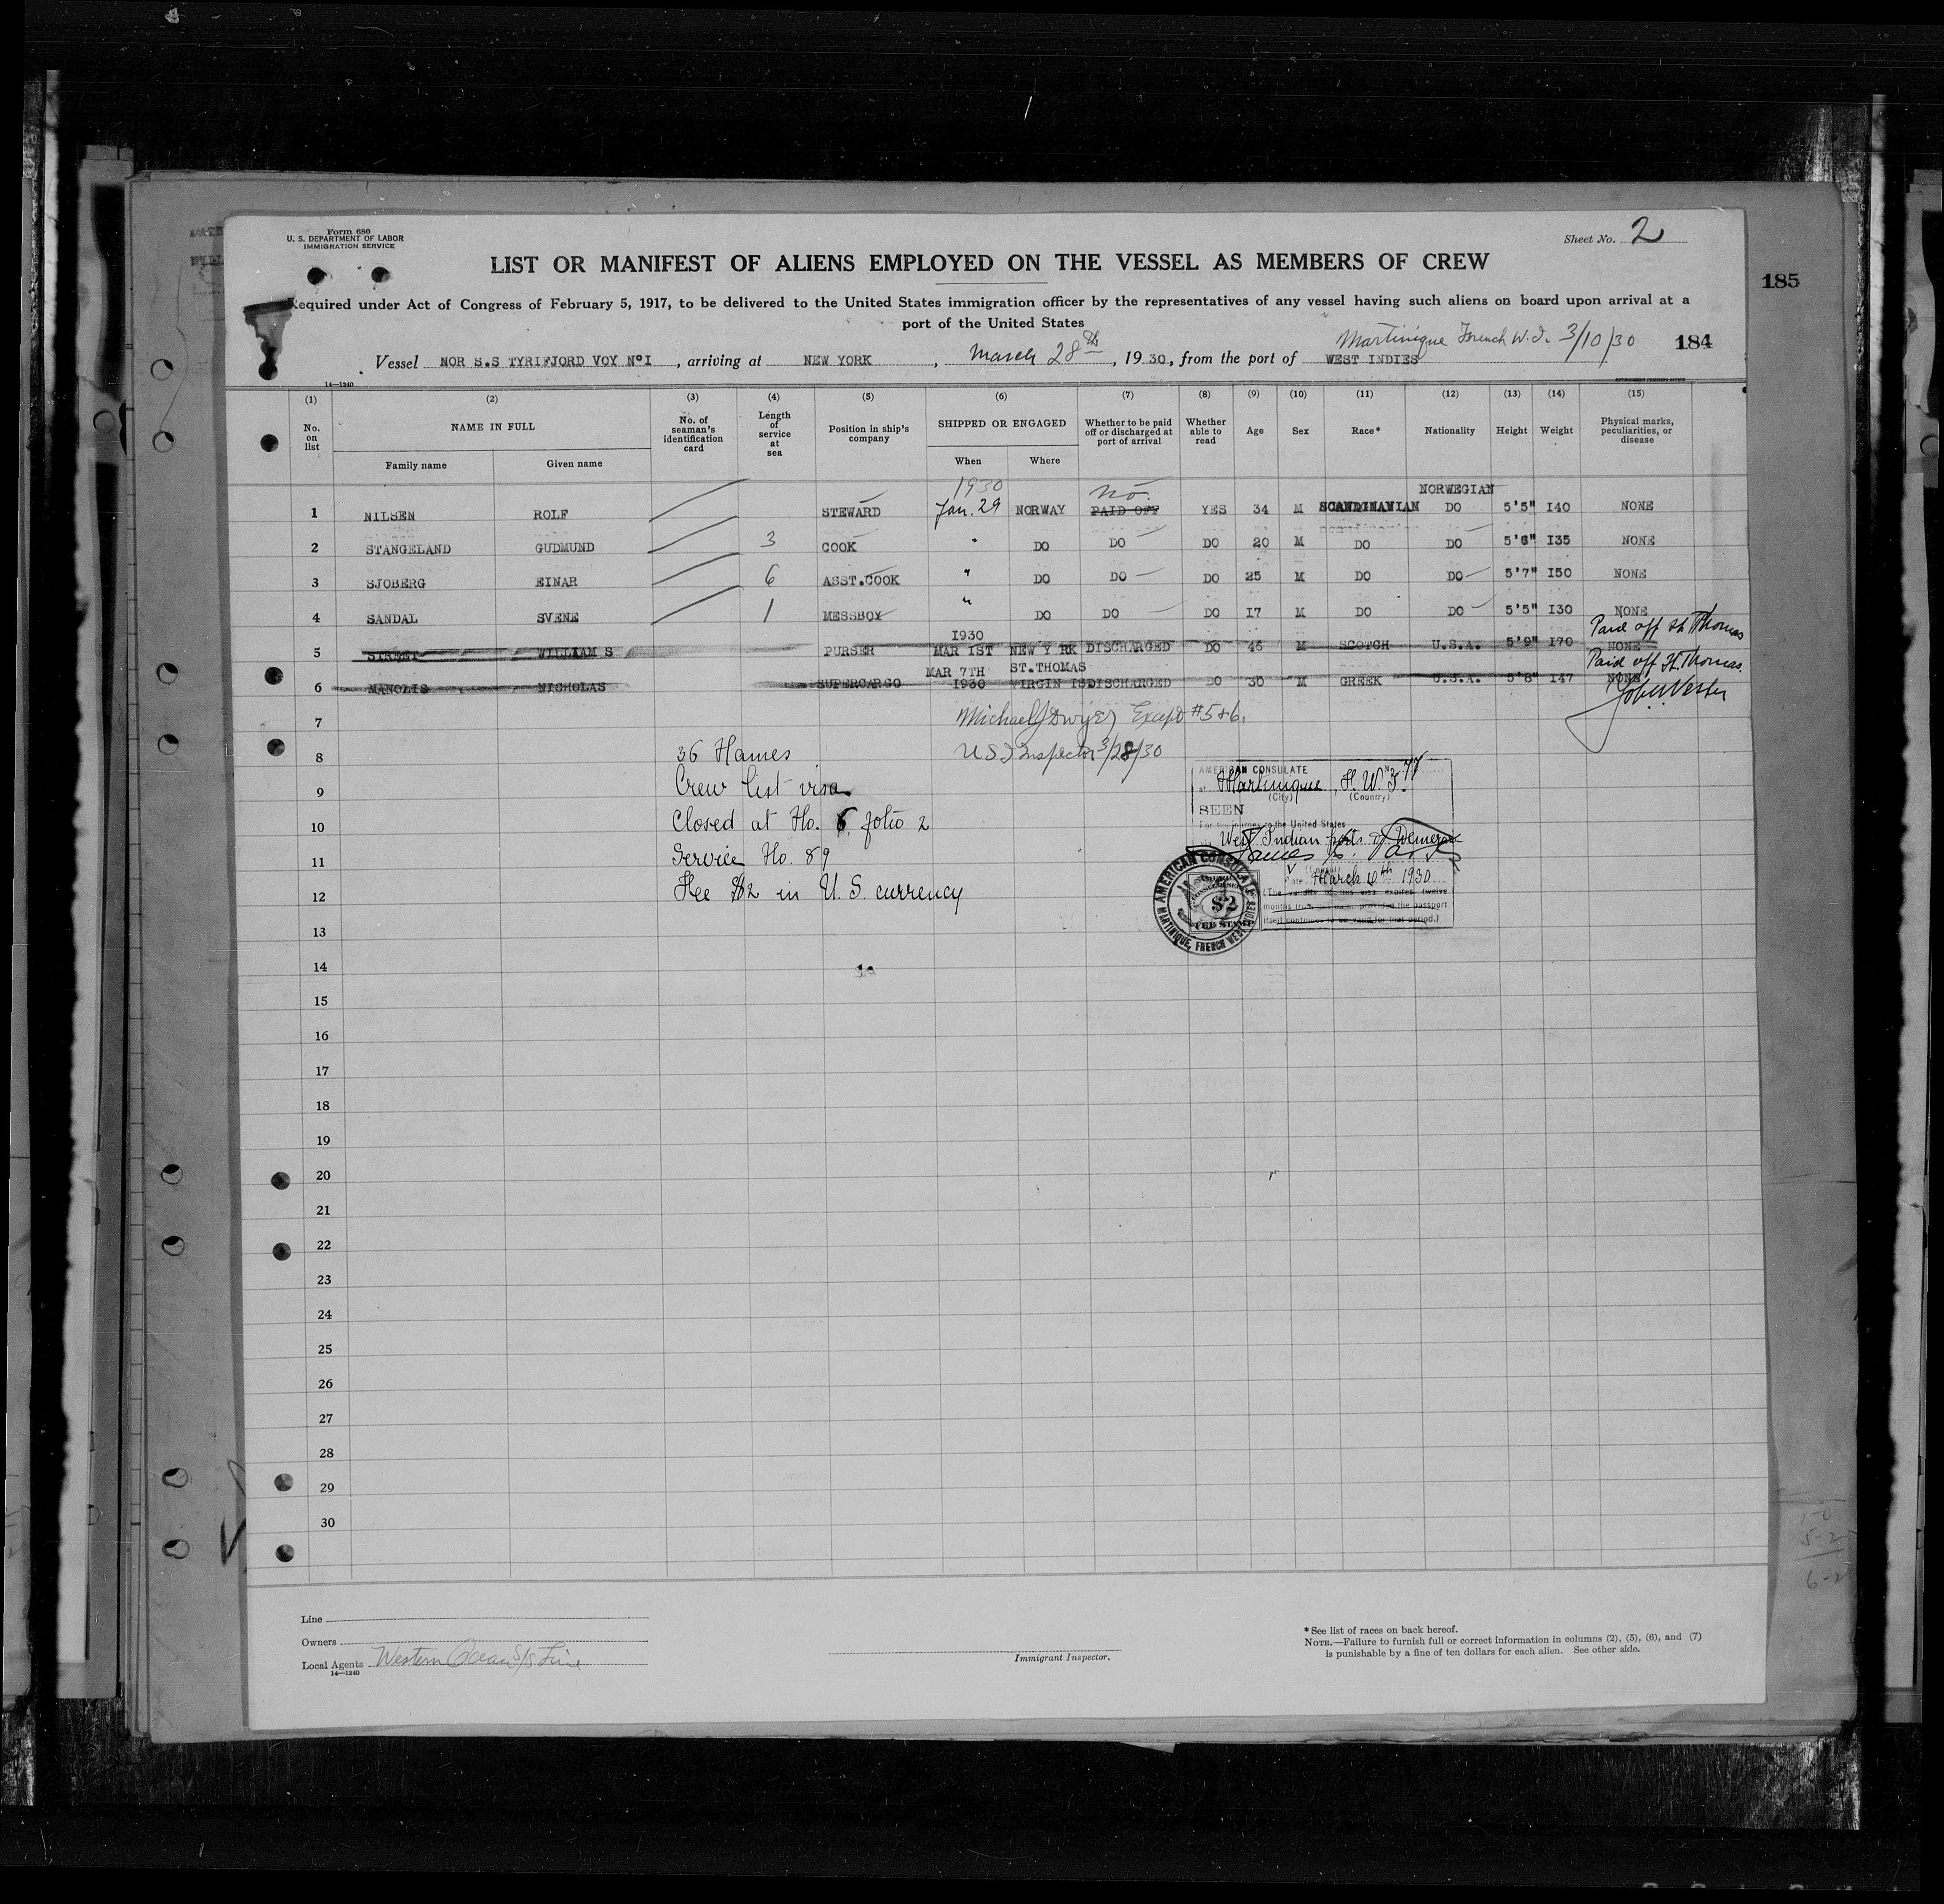 Form 680
U. S. DEPARTMENT OF LABOR
IMMIGRATION SERVICE
Sheet No. 2
LIST OR MANIFEST OF ALIENS EMPLOYED ON THE VESSEL AS MEMBERS OF CREW
185
Required under Act of Congress of February 5, 1917, to be delivered to the United States immigration officer by the representatives of any vessel having such aliens on board upon arrival at a
port of the United States
Martinique French W.I. 3/10/30
184
Vessel NOR S.S TYRIFJORD VOY Nº I, arriving at NEW YORK, March 28th, 1930, from the port of WEST INDIES
14—1240
(1) (2) (3) (4) (5) (6) (7) (8) (9) (10) (11) (12) (13) (14) (15)
No. on list
NAME IN FULL
Family name
Given name
No. of seaman's identification card
Length of service at sea
Position in ship's company
SHIPPED OR ENGAGED
When
Where
Whether to be paid off or discharged at port of arrival
Whether able to read
Age
Sex
Race*
Nationality
Height
Weight
Physical marks, peculiarities, or disease
1930 no. NORWEGIAN
1 NILSEN ROLF STEWARD Jan. 29 NORWAY PAID OFF YES 34 M SCANDINAVIAN DO 5'5" I40 NONE
2 STANGELAND GUDMUND 3 COOK " DO DO DO 20 M DO DO 5'6" I35 NONE
3 SJOBERG EINAR 6 ASST.COOK " DO DO DO 25 M DO DO 5'7" I50 NONE
4 SANDAL SVENE 1 MESSBOY " DO DO DO I7 M DO DO 5'5" I30 NONE
I930 Paid off St Thomas
5 STREET WILLIAM S PURSER MAR IST NEW Y RK DISCHARGED DO 46 M SCOTCH U.S.A. 5'9" I70 NONE
MAR 7TH ST.THOMAS Paid off St. Thomas.
6 MANOLIS NICHOLAS SUPERCARGO I930 VIRGIN IS DISCHARGED DO 30 M GREEK U.S.A. 5'8" I47 NONE
7 Michael J Dwyer Except #5+6.
8 36 Names U S I Inspector 3/28/30
9 Crew list visa
10 Closed at No. 6, folio 2
11 Service No. 89
12 Fee $2 in U. S. currency
AMERICAN CONSULATE
at Martinique, F. W. I.
(City) (Country)
SEEN
For the journey to the United States
West Indian ports
Date March 10th 1930
(The validity of this visa expires twelve
months from this date provided the passport
itself continues to be valid for that period.)
AMERICAN CONSULATE
MARTINIQUE, FRENCH WEST INDIES
$2
FEE STAMP
13
14
15
16
17
18
19
20
21
22
23
24
25
26
27
28
29
30
Line
Owners
Local Agents Western Ocean S/S Line
14—1240
Immigrant Inspector.
*See list of races on back hereof.
NOTE.—Failure to furnish full or correct information in columns (2), (5), (6), and (7)
is punishable by a fine of ten dollars for each alien. See other side.